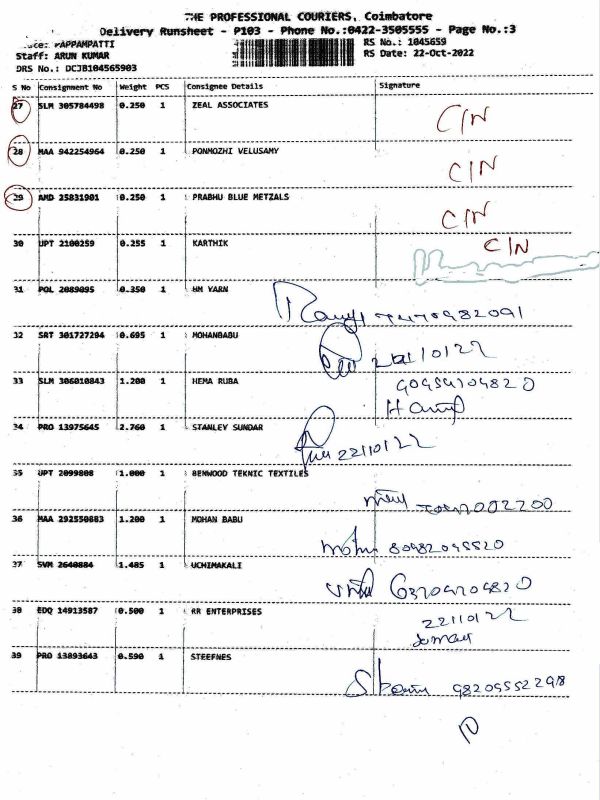 THE PROFESSIONAL COURIERS, Coimbatore
Delivery Runsheet - P103 - Phone No.:0422-3505555 - Page No.:3
PAPPAMPATTI RS No.: 1045659
Staff: ARUN KUMAR RS Date: 22-Oct-2022
DRS No.: DCJB104565903
S No Consignment No Weight PCS Consignee Details Signature
27 SLM 305784498 0.250 1 ZEAL ASSOCIATES C/N
28 MAA 942254964 0.250 1 PONMOZHI VELUSAMY C/N
29 AMD 25831901 0.250 1 PRABHU BLUE METZALS C/N
30 UPT 2100259 0.255 1 KARTHIK C/N
31 POL 2089095 0.350 1 HM YARN
32 SRT 301727294 0.695 1 MOHANBABU
33 SLM 306010843 1.200 1 HEMA RUBA
34 PRO 13975645 2.760 1 STANLEY SUNDAR 22110122
35 UPT 2099808 1.000 1 BENWOOD TEKNIC TEXTILES
36 MAA 292550883 1.200 1 MOHAN BABU
37 SVM 2640884 1.485 1 UCHIMAKALI
38 EDQ 14913587 0.500 1 RR ENTERPRISES 22110122
39 PRO 13893643 0.590 1 STEEFNES